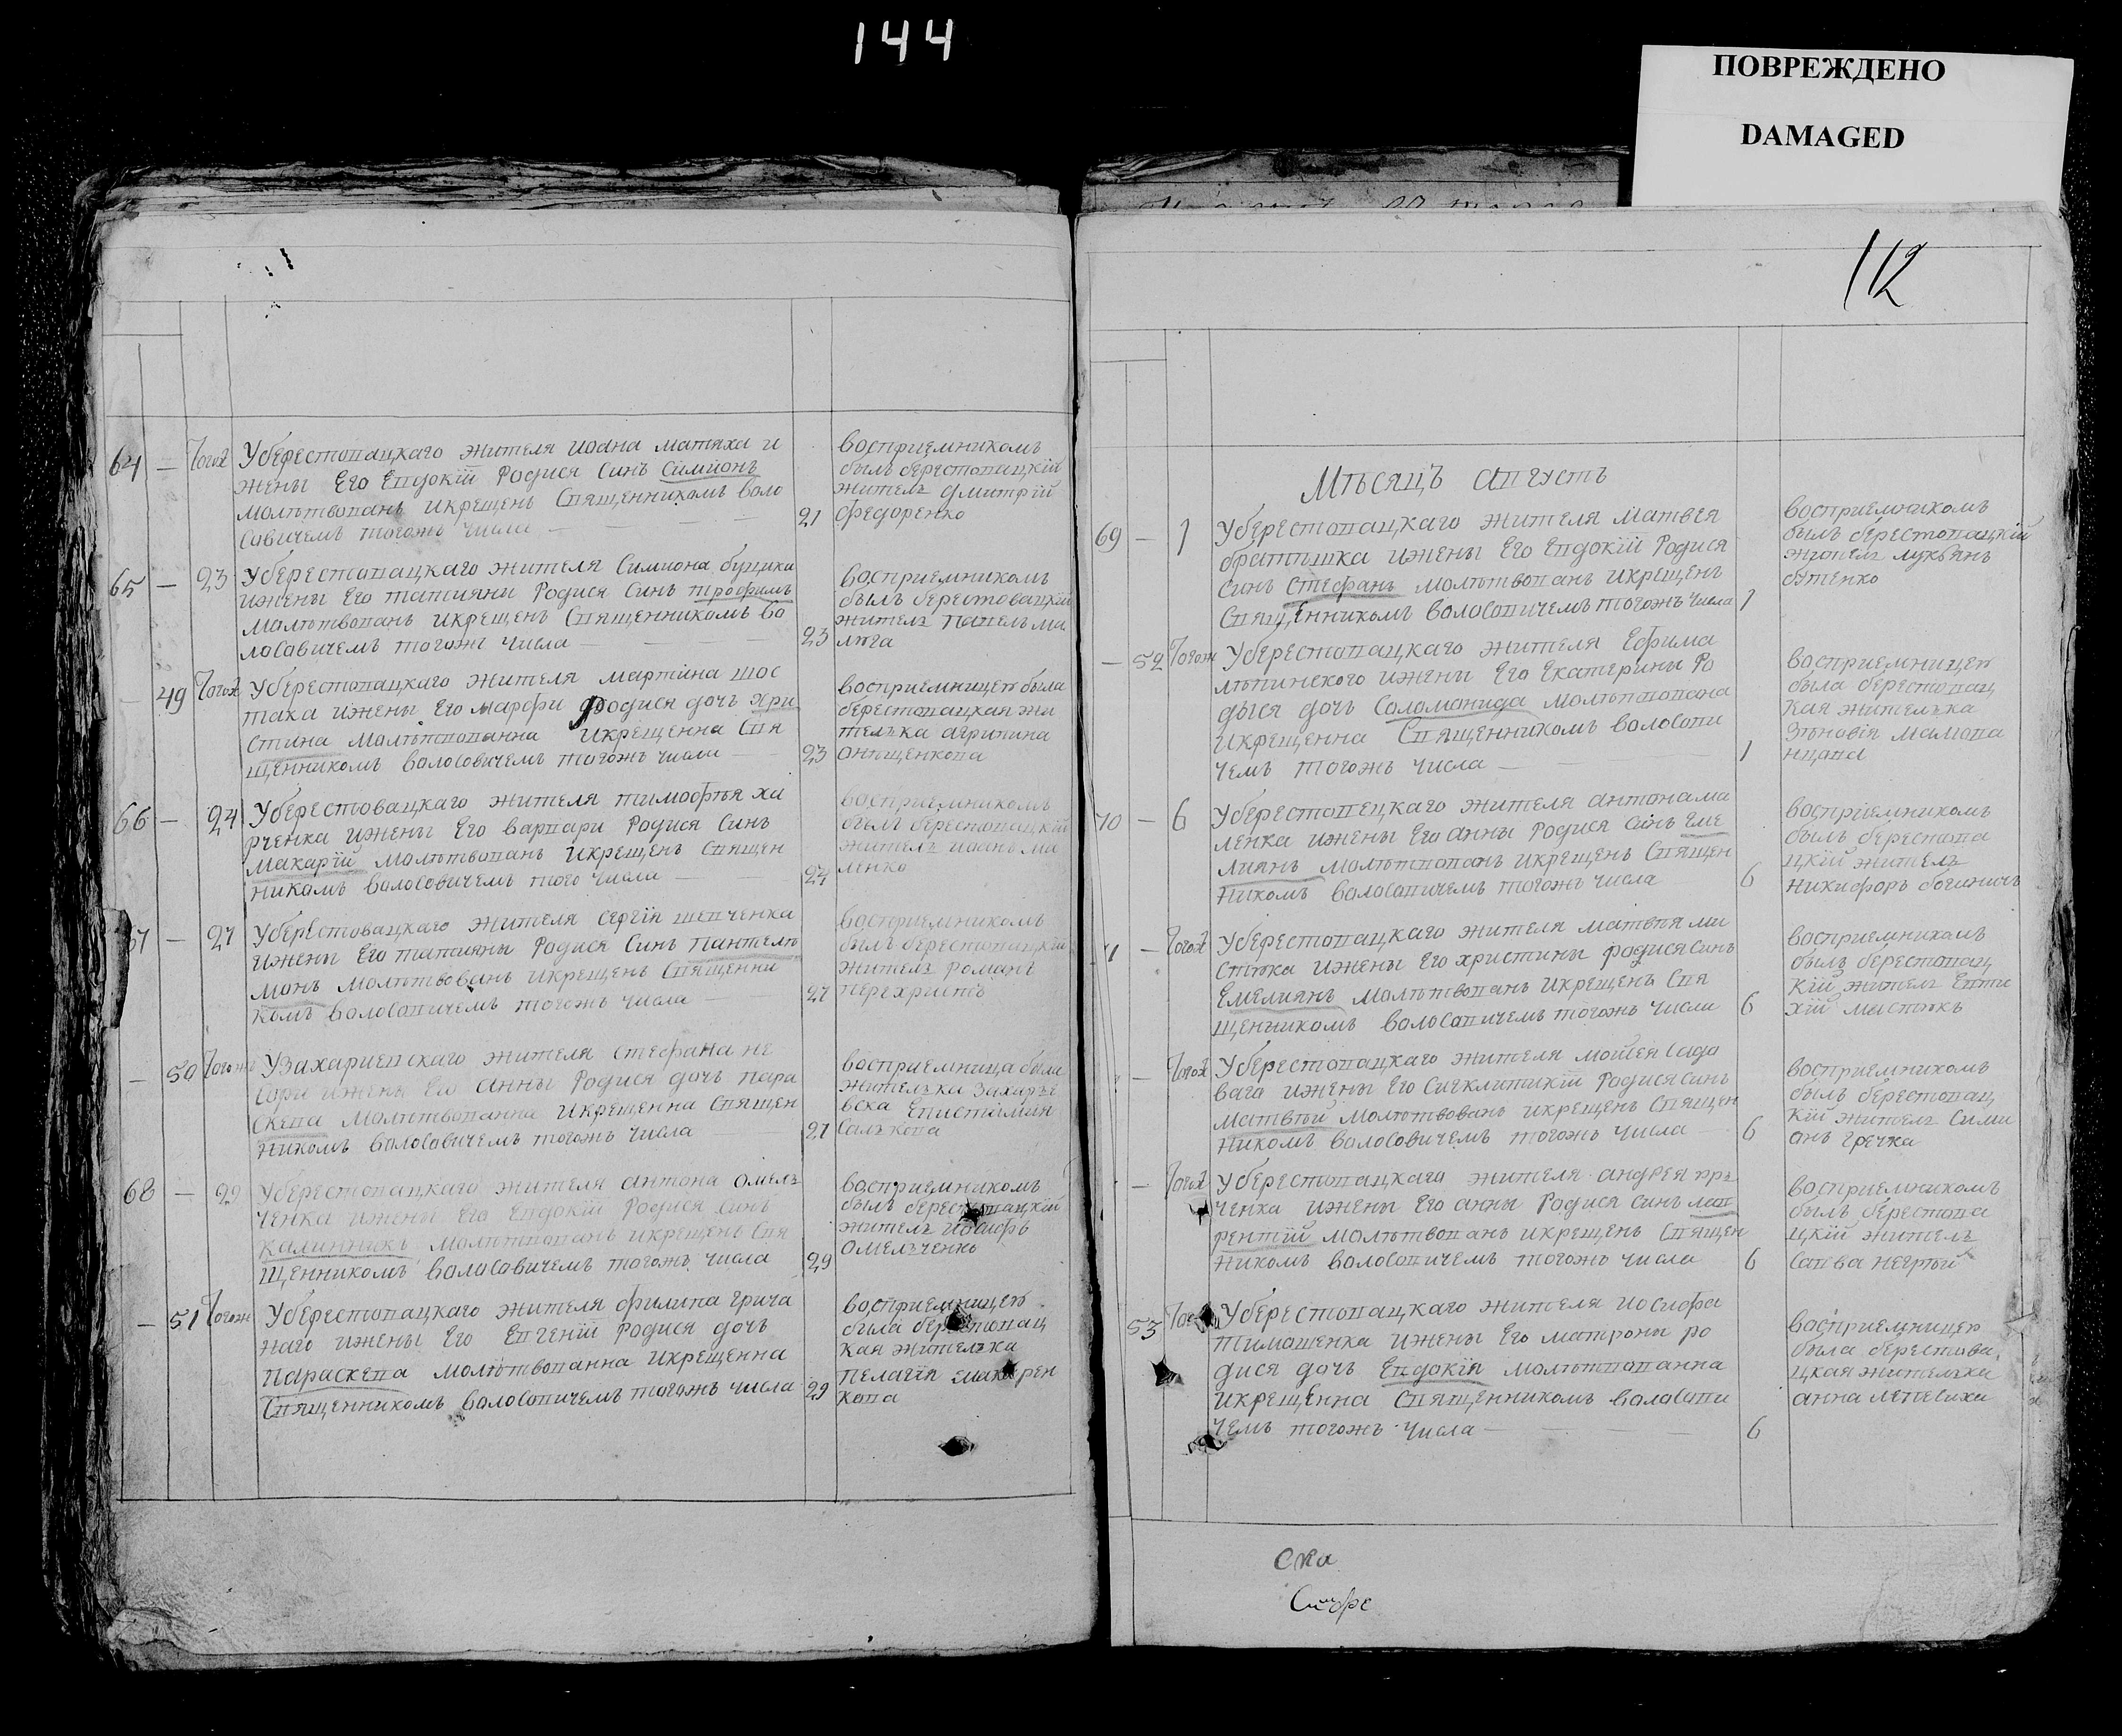 144
ПОВРЕЖДЕНО
DAMAGED
64 — Тогож Уберестовацкаго жителя иоана матяха и
жены Его Евдокїй Родися Синъ Симионъ
молитвованъ икрещенъ Священникомъ воло
совичемъ тогожъ числа — 21
восприемникомъ
былъ берестовацкїй
житель дмитрїй
федоренко
65 — 23 Уберестовацкаго жителя Симиона
ижены Его татияны Родися Синъ трофимъ
молитвованъ икрещенъ Священникомъ во
лосовичемъ тогожъ числа — 23
восприемникомъ
былъ берестовацкїй
житель павелъ ма
люга
— 49 Тогож Уберестовацкаго жителя мартина шос
така ижены Его марфи Родися дочъ Хри
стина молитвованна икрещенна Свя
щенникомъ волосовичемъ тогожъ числа — 23
восприемницею была
берестовацкая жи
телька агрипина
онищенкова
66 — 24 Уберестовацкаго жителя тимофѣя ха
рченка ижены Его варвари Родися Синъ
макарїй молитвованъ икрещенъ Священ
никомъ волосовичемъ того числа — 24
восприемникомъ
былъ берестовацкїй
житель иоанъ ма
ленко
67 — 27 Уберестовацкаго жителя сергїя шевченка
ижены Его татияны Родися Синъ пантелѣ
монъ молитвованъ икрещенъ Священни
комъ волосовичемъ тогожъ числа — 27
восприемникомъ
былъ берестовацкїй
житель романъ
перехристъ
— 50 Тогожъ Узахариевскаго жителя стефана не
ижены Его анны Родися дочъ пара
скева молитвованна икрещенна Священ
никомъ волосовичемъ тогожъ числа 27
восприемница была
жителька захарье
вска Епистимия
Салькова
68 — 29 Уберестовацкаго жителя антона омель
ченка ижены Его Евдокїй Родися Синъ
калинникъ молитвованъ икрещенъ Свя
щенникомъ волосовичемъ тогожъ числа 29
восприемникомъ
былъ берестовацкїй
житель иосифъ
омельченко
— 51 Тогожъ Уберестовацкаго жителя филипа грича
наго ижены Его Евгенїй Родися дочъ
параскева молитвованна икрещенна
Священникомъ волосовичемъ тогожъ числа 29
восприемницею
была берестовац
кая жителька
пелагїя макарен
кова
112
Мѣсяцъ августъ
69 — 1 Уберестовацкаго жителя матвея
ижены Его Евдокїй Родися
синъ Стефанъ молитвованъ икрещенъ
Священникомъ волосовичемъ тогожъ числа 1
восприемникомъ
былъ берестовацкїй
житель лукьянъ
бутенко
— 52 Тогож Уберестовацкаго жителя Ефима
ижены Его Екатерины Ро
дыся дочъ Соломонида молитвована
икрещенна Священникомъ волосови
чемъ тогожъ числа — 1
восприемницею
была берестовац
кая жителька
70 — 6 Уберестовецкаго жителя антона ма
ленка ижены Его анны Родися синъ Еме
лиянъ молитвованъ икрещенъ Священ
никомъ волосовичемъ тогожъ числа 6
восприемникомъ
былъ берестова
цкїй житель
никифоръ
— Тогож Уберестовацкаго жителя матвѣя ма
стюка ижены Его христины родися синъ
Емелиянъ молитвованъ икрещенъ Свя
щенникомъ волосовичемъ тогожъ числа 6
восприемникомъ
былъ берестовац
кїй житель Евти
хїй мастюкъ
— Тогож Уберестовацкаго жителя мойсея садо
ваго ижены Его Сиеклитикїй Родися синъ
матвѣй молитвованъ икрещенъ Священ
никомъ волосовичемъ тогожъ числа 6
восприемникомъ
былъ берестовац
кїй житель Сими
онъ гречка
— Тогож Уберестовацкаго жителя андрея
ченка ижены Его анны Родися синъ лав
рентїй молитвованъ икрещенъ Священ
никомъ волосовичемъ тогожъ числа 6
восприемникомъ
былъ берестова
цкїй житель
53 Уберестовацкаго жителя иосифа
тимошенка ижены Его матроны ро
дися дочъ Евдокїя молитвованна
икрещенна Священникомъ волосови
чемъ тогожъ числа — 6
восприемницею
была берестова
цкая жителька
анна